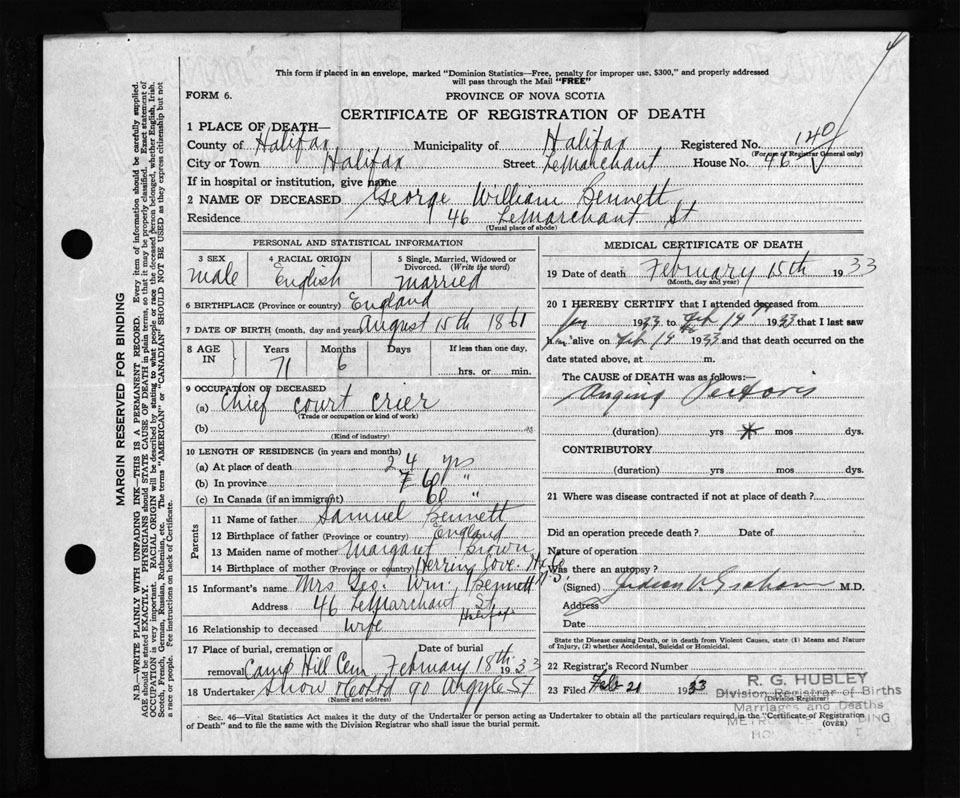 This form if placed in an envelope, marked "Dominion Statistics—Free, penalty for improper use, $300," and properly addressed
will pass through the Mail "FREE"
FORM 6. PROVINCE OF NOVA SCOTIA
CERTIFICATE OF REGISTRATION OF DEATH
1 PLACE OF DEATH—
County of Halifax Municipality of Halifax Registered No. 140
(For use of Registrar General only)
City or Town Halifax Street LeMarchant House No. 46
If in hospital or institution, give name
2 NAME OF DECEASED George William Bennett
Residence 46 LeMarchant St
(Usual place of abode)
PERSONAL AND STATISTICAL INFORMATION
3 SEX 4 RACIAL ORIGIN 5 Single, Married, Widowed or
Divorced. (Write the word)
male English married
6 BIRTHPLACE (Province or country) England
7 DATE OF BIRTH (month, day and year) August 15th 1861
8 AGE IN Years Months Days If less than one day,
71 6 hrs. or min.
9 OCCUPATION OF DECEASED
(a) Chief Court Crier
(Trade or occupation or kind of work)
(b)
(Kind of industry)
10 LENGTH OF RESIDENCE (in years and months)
(a) At place of death 24 yrs
(b) In province 60 "
(c) In Canada (if an immigrant) 60 "
Parents
11 Name of father Samuel Bennett
12 Birthplace of father (Province or country) England
13 Maiden name of mother Margaret Brown
14 Birthplace of mother (Province or country) Herring Cove Hx Co. N.S.
15 Informant's name Mrs Geo. Wm. Bennett
Address 46 LeMarchant St
Halifax
16 Relationship to deceased wife
17 Place of burial, cremation or Date of burial
removal Camp Hill Cem February 18th 1933
18 Undertaker Snow 90 Argyle St
(Name and address)
MEDICAL CERTIFICATE OF DEATH
19 Date of death February 15th 1933
(Month, day and year)
20 I HEREBY CERTIFY that I attended deceased from
Jan 1933 to Feb 14 1933 that I last saw
him alive on Feb 14 1933 and that death occurred on the
date stated above, at m.
The CAUSE OF DEATH was as follows:—
Angina Pectoris
(duration) yrs mos dys.
CONTRIBUTORY
(duration) yrs mos dys.
21 Where was disease contracted if not at place of death?
Did an operation precede death? Date of
Nature of operation
Was there an autopsy?
(Signed) Judson V. Graham M.D.
Address
Date
State the Disease causing Death, or in death from Violent Causes, state (1) Means and Nature
of Injury, (2) whether Accidental, Suicidal or Homicidal.
22 Registrar's Record Number
23 Filed Feb 21 1933
R. G. HUBLEY
(Division Registrar)
Division Registrar of Births
Marriages and Deaths
Sec. 46—Vital Statistics Act makes it the duty of the Undertaker or person acting as Undertaker to obtain all the particulars required in the "Certificate of Registration
of Death" and to file the same with the Division Registrar who shall issue the burial permit. (OVER)
MARGIN RESERVED FOR BINDING
N.B.—WRITE PLAINLY WITH UNFADING INK—THIS IS A PERMANENT RECORD. Every item of information should be carefully supplied.
AGE should be stated EXACTLY. PHYSICIANS should STATE CAUSE OF DEATH in plain terms, so that it may be properly classified. Exact statement of
OCCUPATION is very important. RACIAL ORIGIN will be described by stating to what people or race the deceased person belonged, whether English, Irish,
Scotch, French, German, Russian, Ruthenian, etc. The terms "AMERICAN" or "CANADIAN" SHOULD NOT BE USED as they express citizenship but not
a race or people. Fee instructions on back of Certificate.